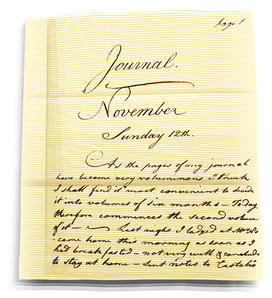 Page 1
Journal.
November
Sunday 12th.
As the pages of my journal
have become very voluminous I think
I shall find it most convenient to divide
it into volumes of six months – Today
therefore commences the second volum
of it – Last night I lodged at
came home this morning as soon as I
had breakfasted – not very well & concluded
to stay at home – sent notes to